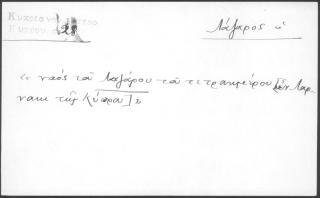 28
Λάζαρος ὁ
ὁ ναός τοῦ Λαζάρου τοῦ τετραημέρου [ἐν Λαρ-
νακι τῆς Κύπρου]